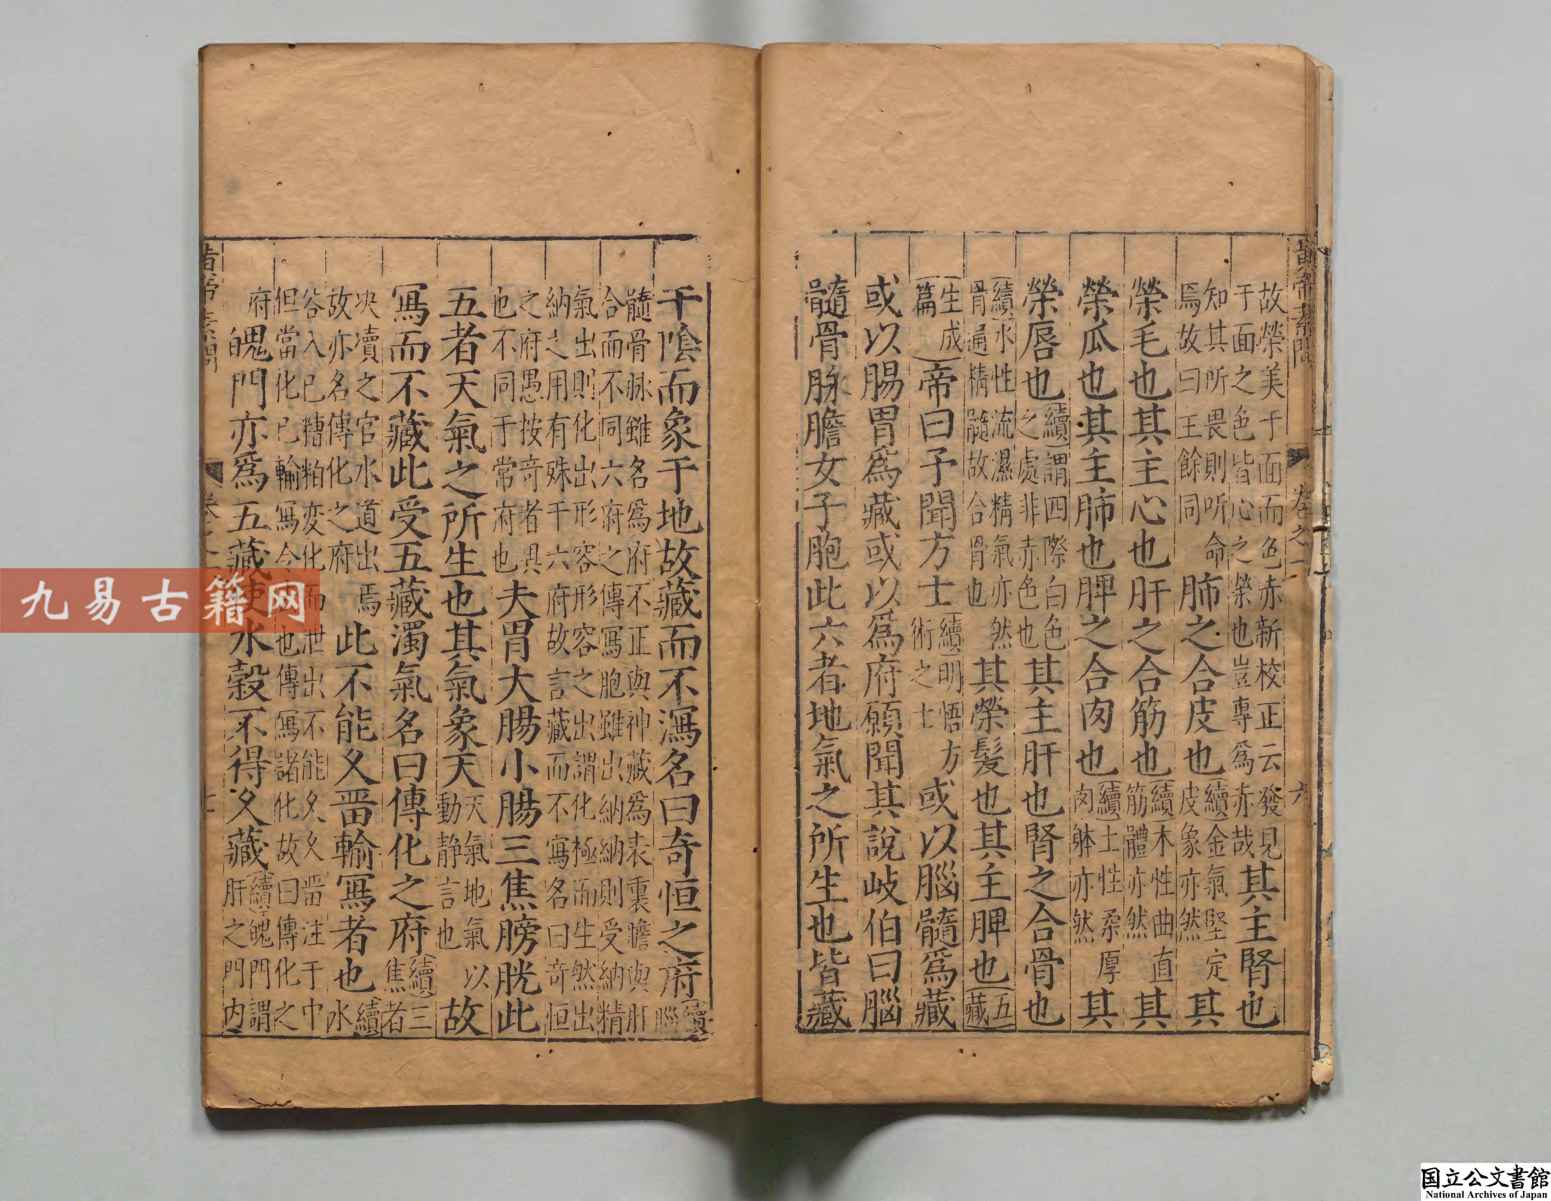 故榮美于面而色赤新校正云發見
于面之色皆心之榮也豈專爲赤哉其主腎也
知其所畏則所命
焉故曰王餘同肺之合皮也續金氣堅定
皮象亦然其
榮毛也其主心也肝之合筋也續木性曲直
筋體亦然其
榮瓜也其主肺也脾之合肉也續土性柔厚
肉體亦然其
榮唇也續謂四際白色
之處非赤色也其主肝也腎之合骨也
續水性流濕精氣亦然
骨通精髓故合骨也其榮髮也其主脾也五藏
生成
篇帝曰予聞方士續明悟方
術之士或以腦髓爲藏
或以腸胃爲藏或以爲府願聞其說岐伯曰腦
髓骨脉膽女子胞此六者地氣之所生也皆藏
于陰而象于地故藏而不瀉名曰奇恒之府續
腦
髓骨脉雖名爲府不正與神藏爲表裏膽與肝
合而不同六府之傳寫胞雖出納納則受納精
氣出則化出形容形容之出謂化極而生然出
納之用有殊于六府故言藏而不寫名曰奇恒
之府愚按奇者異
也不同于常府也夫胃大腸小腸三焦膀胱此
五者天氣之所生也其氣象天天氣地氣以
動靜言也故
寫而不藏此受五藏濁氣名曰傳化之府續三
焦者
决瀆之官水道出焉
故亦名傳化之府此不能久畱輸寫者也續
水
谷入已糟粕変化而泄出不能久久畱注于中
但當化已輸寫令 也傳寫諸化故曰傳化之
府魄門亦爲五藏使水穀不得久藏續魄門謂
肝之門内
黃帝素問 卷之一 六
卷之一 七
九易古籍网
国立公文書館
National Archives of Japan